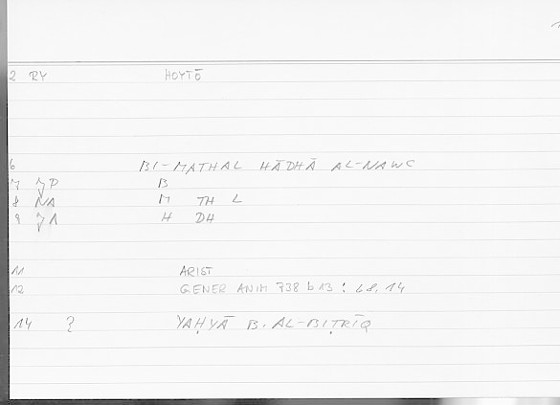 2 RY HOYTŌ
6 BI-MATHAL HĀDHĀ AL-NAWC
7 JP B
8 NA M TH L
9 JA H DH
11 ARIST
12 GENER ANIM 738 b 13 : 68, 14
14 ? YAḤYĀ B. AL-BIṬRĪQ